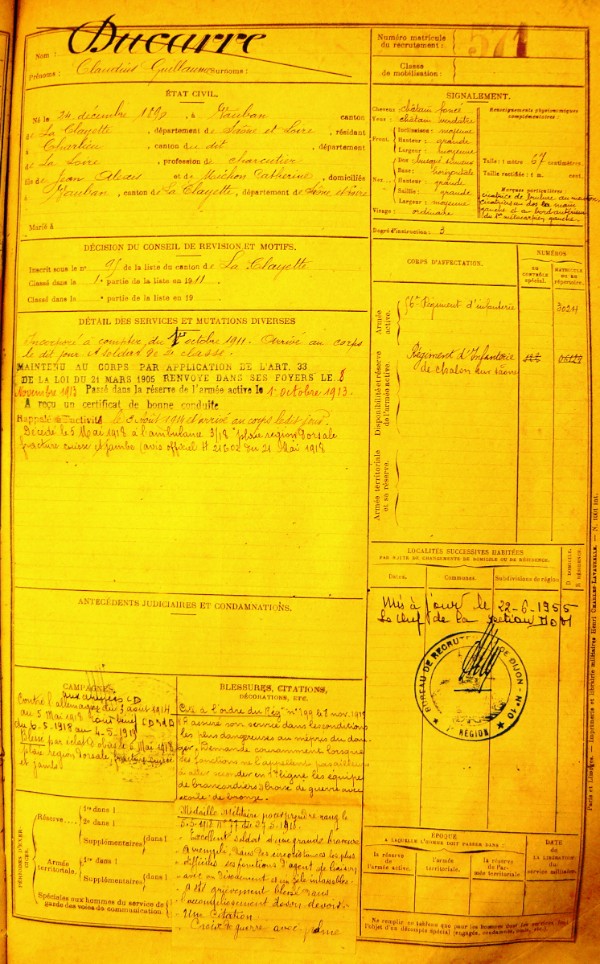 Nom : Ducarre
Prénoms : Claudius Guillaume Surnoms :
Numéro matricule
du recrutement :
571
Classe
de mobilisation :
ÉTAT CIVIL.
Né le 24 décembre 1890, à Vauban canton
de La Clayette, département de Saône et Loire, résidant
à Charlieu canton de dit, département
de La Loire, profession de charcutier
fils de Jean Alexis et de Michon Catherine, domiciliés
à Vauban, canton de La Clayette, département de Saône et Loire
Marié à
SIGNALEMENT.
Cheveux châtain foncé
Yeux : châtain verdâtre
Front. Inclinaison : moyenne
Hauteur : grande
Largeur : moyenne
Nez. Dos sinueux
Base : horizontale
Hauteur : grande
Saillie : grande
Largeur : moyenne
Visage : ordinaire
Renseignements physionomiques
complémentaires :
Taille : 1 mètre 67 centimètres.
Taille rectifiée : 1 m. cent.
Marques particulières
Degré d'instruction : 3
DÉCISION DU CONSEIL DE REVISION ET MOTIFS.
Inscrit sous le n° 95 de la liste du canton de La Clayette
Classé dans la 1e partie de la liste en 1911
Classé dans la partie de la liste en 19
DÉTAIL DES SERVICES ET MUTATIONS DIVERSES
Incorporé à compter du 1er octobre 1911. Arrivé au corps
le dit jour soldat de 2e classe.
MAINTENU AU CORPS PAR APPLICATION DE L'ART. 33
DE LA LOI DU 21 MARS 1905 RENVOYÉ DANS SES FOYERS LE 8
Novembre 1913 Passé dans la réserve de l'armée active le 1er octobre 1913.
A reçu un certificat de bonne conduite
Rappelé activité le 3 août 1914 et arrivé au corps le dit jour
Décédé le 5 Mai 1918 à l'ambulance 3/18 "plaie région dorsale
fracture cuisse et jambe (avis officiel N 21602 du 21 Mai 1918
CORPS D'AFFECTATION.
NUMÉROS
AU CONTRÔLE
spécial.
MATRICULE
OU AU
répertoire.
Armée
active.
56e Régiment d'infanterie
3024
Disponibilité et réserve
de l'armée active.
Régiment d'Infanterie
de Chalon sur Saône
Armée territoriale
et sa réserve.
LOCALITÉS SUCCESSIVES HABITÉES
PAR SUITE DE CHANGEMENTS DE DOMICILE OU DE RÉSIDENCE.
Dates.
Communes.
Subdivisions de région.
D domicile.
R résidence.
Mis à jour le 22-6-1955
Le chef de la section
BUREAU DE RECRUTEMENT DE DIJON - N° 10
7e RÉGION
ANTÉCÉDENTS JUDICIAIRES ET CONDAMNATIONS.
CAMPAGNES
aux armées CD
Contre l'allemagne du 3 août 1914
au 5 Mai 1918
du 6.5.1918 au 4.5.1919
Blessé par éclat d'obus le 5 Mai 1918
plaie région dorsale, fracture cuisse
et jambe
BLESSURES, CITATIONS,
DÉCORATIONS, ETC.
Cité à l'ordre du Rég n° 199
A assuré son service dans les conditions
les plus dangereuses au mépris du dan-
ger. Demande couramment lorsque
ses fonctions ne l'appellent pas ailleurs
à aller seconder en 1ère ligne les équipes
de brancardiers. Croix de guerre avec
étoile de bronze.
Médaille Militaire pour prendre rang le
Excellent soldat d'une grande bravoure
A rempli dans les circonstances les plus
difficiles ses fonctions d'agent de liaison
avec un dévouement et un zèle inlassables.
A été grièvement blessé dans
l'accomplissement de son devoir.
Une citation
Croix de guerre avec palme
PÉRIODES D'EXER-
Réserve
1re dans l
2e dans l
Supplémentaires dans l
Armée
territoriale.
1re dans l
Supplémentaires dans l
Spéciales aux hommes du service de
garde des voies de communication.
ÉPOQUE
À LAQUELLE L'HOMME DOIT PASSER DANS :
la réserve
de l'armée active.
l'armée
territoriale.
la réserve
de l'ar-
mée territoriale.
DATE
DE LA LIBÉRATION
DU
service militaire.
Ne remplir ce tableau que pour les hommes dont les services font
l'objet d'un décompte spécial (engagés, condamnés, omis, etc.)
Paris et Limoges. — Imprimerie et librairie militaires Henri CHARLES-LAVAUZELLE.